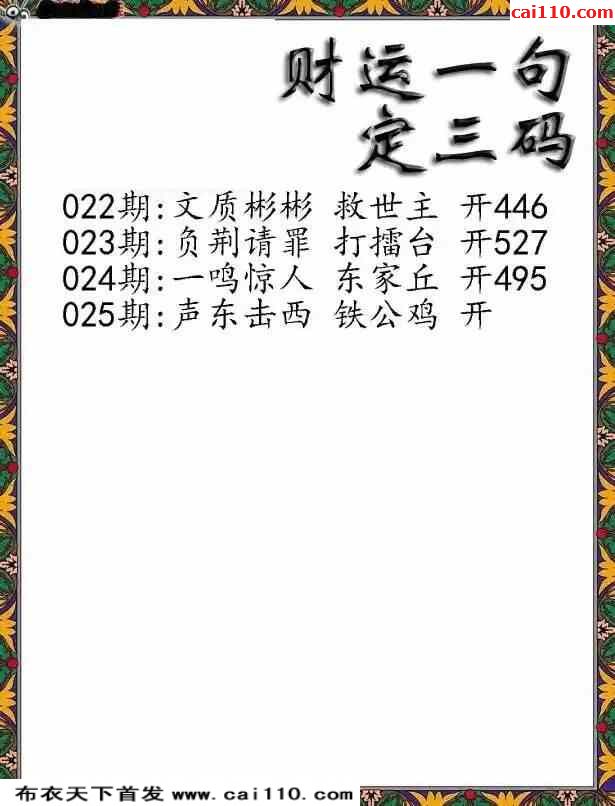 cai110.com
财运一句
定三码
022期:文质彬彬 救世主 开446
023期:负荆请罪 打擂台 开527
024期:一鸣惊人 东家丘 开495
025期:声东击西 铁公鸡 开
布衣天下首发 www.cai110.com